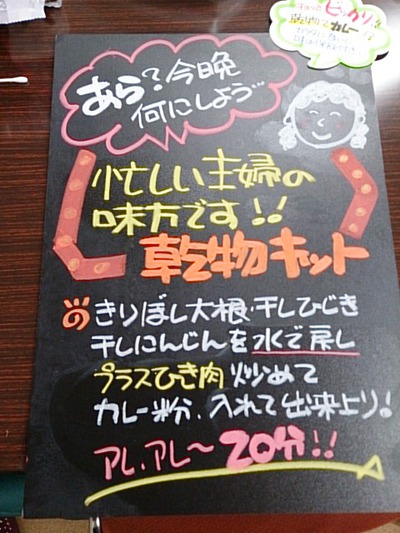 びっくり
乾物でカレー
あら?今晩
何にしよう
忙しい主婦の
味方です!!
乾物キット
きりぼし大根・干しひじき
干しにんじんを水で戻し
プラスひき肉炒めて
カレー粉、入れて出来上り!
アレ、アレ〜20分!!